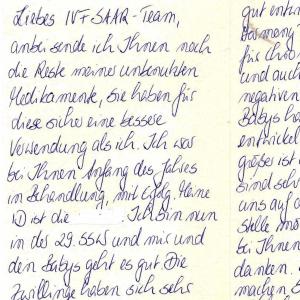 Liebes IVF-SAAR-Team,
anbei sende ich Ihnen noch
die Reste meiner unbenutzten
Medikamente, Sie haben für
diese sicher eine bessere
Verwendung als ich. Ich war
bei Ihnen Anfang des Jahres
in Behandlung, mit Erfolg. Meine
ID ist die Ich bin nun
in der 29. SSW und mir und
den Babys geht es gut. Die
Zwillinge haben sich sehr
gut entw
für Chro
und auch
negativen
Babys ha
entwickel
größer ist
sind sehr
uns auf d
stelle mö
bei Ihnen
danken.
machen S